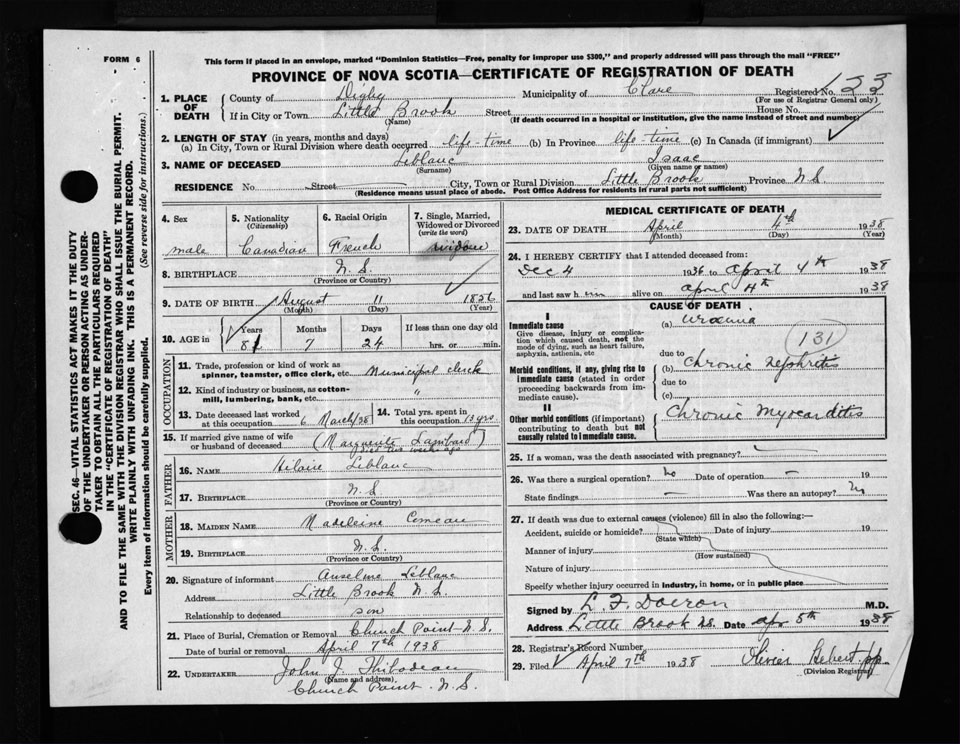 FORM 6
This form if placed in an envelope, marked "Dominion Statistics—Free, penalty for improper use $300," and properly addressed will pass through the mail "FREE"
PROVINCE OF NOVA SCOTIA—CERTIFICATE OF REGISTRATION OF DEATH
SEC. 46—VITAL STATISTICS ACT MAKES IT THE DUTY
OF THE UNDERTAKER OR PERSON ACTING AS UNDER-
TAKER TO OBTAIN ALL THE PARTICULARS REQUIRED
IN THE "CERTIFICATE OF REGISTRATION OF DEATH"
AND TO FILE THE SAME WITH THE DIVISION REGISTRAR WHO SHALL ISSUE THE BURIAL PERMIT.
WRITE PLAINLY WITH UNFADING INK. THIS IS A PERMANENT RECORD.
Every item of Information should be carefully supplied. (See reverse side for instructions.)
1. PLACE OF DEATH County of Digby Municipality of Clare Registered No. 123
(For use of Registrar General only)
If in City or Town Little Brook Street House No.
(Name) (If death occurred in a hospital or institution, give the name instead of street and number)
2. LENGTH OF STAY (in years, months and days)
(a) In City, Town or Rural Division where death occurred life-time (b) In Province life-time (c) In Canada (if immigrant)
3. NAME OF DECEASED Leblanc Isaac
(Surname) (Given name or names)
RESIDENCE No. Street City, Town or Rural Division Little Brook Province N.S.
(Residence means usual place of abode. Post Office Address for residents in rural parts not sufficient)
4. Sex male
5. Nationality (Citizenship) Canadian
6. Racial Origin French
7. Single, Married, Widowed or Divorced (write the word) widow
8. BIRTHPLACE N.S.
(Province or Country)
9. DATE OF BIRTH August 11 1856
(Month) (Day) (Year)
10. AGE in Years 81 Months 7 Days 24 If less than one day old hrs. or min.
OCCUPATION
11. Trade, profession or kind of work as spinner, teamster, office clerk, etc. Municipal clerk
12. Kind of industry or business, as cotton-mill, lumbering, bank, etc. "
13. Date deceased last worked at this occupation 6 March/38 14. Total yrs. spent in this occupation 13 yrs.
15. If married give name of wife or husband of deceased (Marguerite Lombard)
died two weeks ago
FATHER
16. NAME Hilaire Leblanc
17. BIRTHPLACE N.S
(Province or Country)
MOTHER
18. MAIDEN NAME Madeleine Comeau
19. BIRTHPLACE N.S.
(Province or Country)
20. Signature of informant Anselme Leblanc
Address Little Brook N.S.
Relationship to deceased son
21. Place of Burial, Cremation or Removal Church Point N.S.
Date of burial or removal April 7th 1938
22. UNDERTAKER John J. Thibodeau
(Name and address)
Church Point N.S.
MEDICAL CERTIFICATE OF DEATH
23. DATE OF DEATH April 4th 1938
(Month) (Day) (Year)
24. I HEREBY CERTIFY that I attended deceased from:
Dec 4 1936 to April 4th 1938
and last saw him alive on April 4th 1938
CAUSE OF DEATH
I
Immediate cause (a) Uraemia
Give disease, injury or complication which caused death, not the mode of dying, such as heart failure, asphyxia, asthenia, etc
131
due to
Morbid conditions, if any, giving rise to immediate cause (stated in order proceeding backwards from immediate cause) (b) Chronic Nephritis
due to
(c)
II
Other morbid conditions (if important) contributing to death but not causally related to immediate cause. Chronic Myocarditis
25. If a woman, was the death associated with pregnancy?
26. Was there a surgical operation? No Date of operation — 19
State findings — Was there an autopsy? No
27. If death was due to external causes (violence) fill in also the following:—
Accident, suicide or homicide? Date of injury 19
(State which)
Manner of injury
(How sustained)
Nature of injury
Specify whether injury occurred in industry, in home, or in public place
Signed by L. F. Doiron M.D.
Address Little Brook N.S. Date Apr 5th 1938
28. Registrar's Record Number
29. Filed April 7th 1938 Olivier Hebert
(Division Registrar)